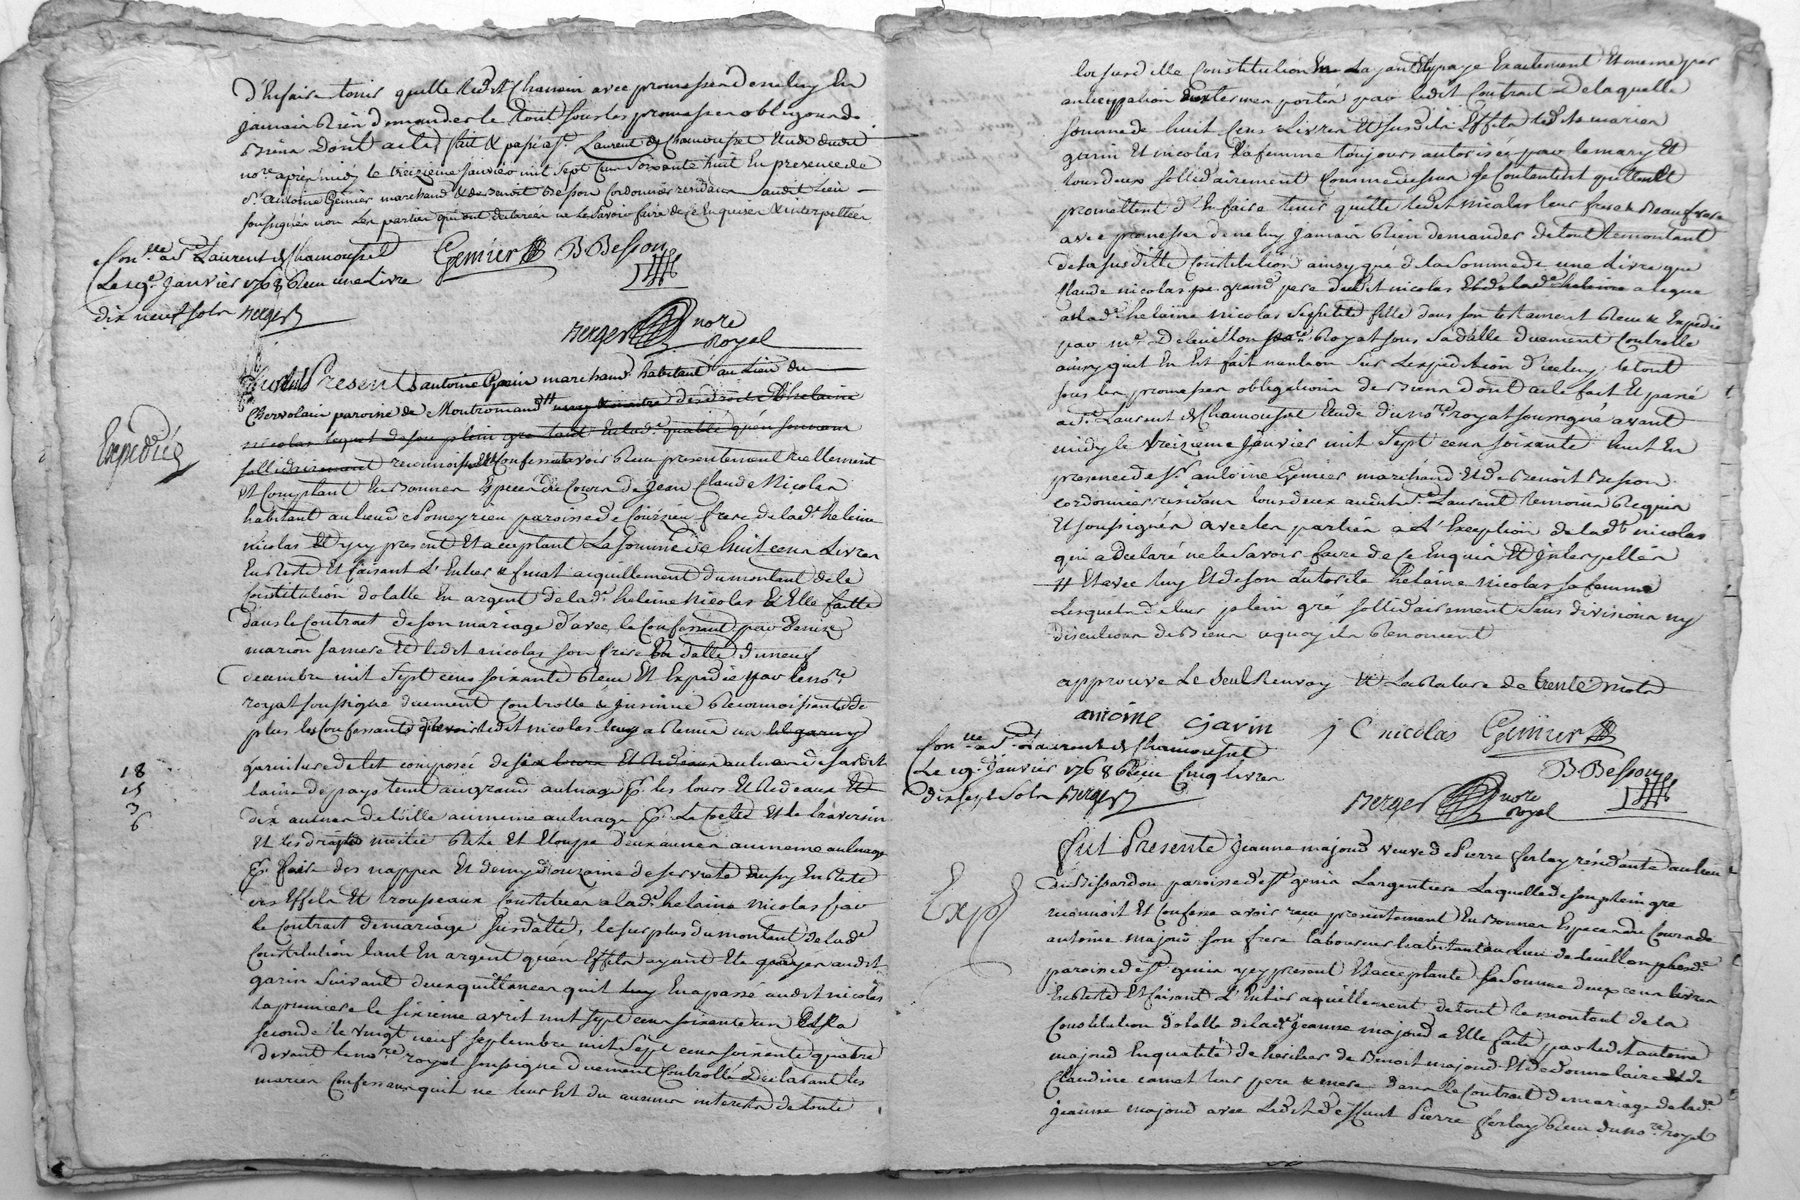 d'En faire tenir quitte ledit Chanain avec promesse de ne luy En
jamais Rien demander le tout sous les promesses obligaons de
Biens Dont acte, fait & passé a St. Laurent de Chamousset Etude dudit
nore. apres midy le treizieme janvier mil sept Cens soixante huit En presence de
Sr. Antoine Gemier marchand & de Benoit Besson Cordonnier residans audit Lieu
soussignés non Les parties qui ont declarées ne le savoir faire de ce Enquises & interpellées
Con.lle a St Laurent de Chamousset
Le 19e. Janvier 1768 Reçu une Livre
dix neuf sols Berger
Gemier B Besson
Berger nore
Royal
Expediée
Present antoine Garin marchand habitant au Lieu du
Chervolain paroisse de Montromand # mary & maitre des droits d'helaine
nicolas lequel de son plein gre tant En lad. qualité qu'en son nom
sollidairement reconnoissent Confessent avoir Reçu presentement reellement
Et Comptant En Bonnes Especes du Cours de Jean Claude Nicolas
habitant au lieu de Pomeyrieu paroisse de Sourzieu frere de lad. helaine
nicolas Et icy present Et acceptant La somme de huit cens Livres
En Reste Et faisant L'Entier & final aquittement du montant de la
Constitution dotalle En argent de lad. helaine Nicolas a Elle faitte
dans le Contrat de son mariage d'avec le Confessant par Denise
marion sa mere Et ledit nicolas son frere En datte du neuf
decembre mil sept cens soixante Reçu Et Expedié par Le nore.
royal soussigné duement Controllé & insinué Reconnoissants de
plus les Confessants que ledit nicolas leur a Remis un lit garny
garniture de lit composée de six aulnes de sardit
laine de pays teint au grand aulnage pr. les tours Et Rideaux
dix aulnes de toille au meme aulnage pr. La Coete Et le traversin
Et les draps moitié Rite Et Etoupe deux aunes au meme aulnage
pr. faire des nappes Et demy douzaine de serviete aussy En Reste
des Effets Et trousseaux Constitués a lad. helaine nicolas par
le Contrat de mariage susdatté, le surplus du montant de lade.
Constitution tant En argent qu'en Effets ayant Eté payer audit
garin suivant deux quittances qu'il luy En a passé audit nicolas
la premiere le sixieme avril mil sept cens soixante un Et la
seconde le vingt neuf septembre mil sept cens soixante quatre
devant le nore royal soussigné duement Controllé Declarant les
mariés Confessans qu'il ne leur Est du aucuns interets de toute
18
15
3
6
la susditte Constitution La yant Eté payé Exactement Et meme par
anticippation des termes portés par ledit Contrat De laquelle
somme de huit Cens Livres Et susdits Effets lesdits mariés
garin Et nicolas sa femme toujours autorisée par le mary Et
tous deux sollidairement Comme dessus se Contentent quittent Et
promettent d'En faire tenir quitte ledit nicolas leur frere & Beau frere
avec promesse de ne luy jamais Rien demander de tout le montant
de la susditte Constitution ainsy que de la somme de une Livre que
Claude nicolas grand pere dudit nicolas Et de lade helaine a legué
a lade. helaine nicolas sa petite fille dans son testament Reçu & Expedié
par me. Deleuillon nore Royal sous sa datte duement Controllé
ainsy qu'il En Est fait mention sur L'expedition d'icelluy; le tout
sous les promesses obligations de Biens dont acte fait Et passé
ad. St Laurent de Chamousset Etude du nore. royal soussigné avant
midy le treizieme janvier mil sept cens soixante huit En
presence de Sr. antoine Gemier marchand Et de Benoit Besson
cordonnier residans tous deux audit St Laurent temoins Requis
Et soussignés avec les parties a L'Exception de lade nicolas
qui a declaré ne le savoir faire de ce Enquis Et Interpellés
# Et avec luy Et de son autorité helaine nicolas sa femme
Lesquels de leur plein gré sollidairement sans division ny
discution de Biens a quoy ils Renoncent
approuvé Le seul Renvoy Et La Rature de trente mots
antoine garin j C nicolas Gemier
B Besson
Con.lle a St. Laurent de Chamousset
Le 19e. Janvier 1768 Reçu Cinq livres
dix sept sols Berger
Berger nore
royal
Exp
Fut Presente Jeanne majoud veuve de Pierre ferlay résidante au lieu
du Bissardon paroisse de St genis Largentiere Laquelle de son plein gre
reconnoit Et Confesse avoir reçu presentement En Bonnes Especes du Cours de
antoine majoud son frere laboureur habitant au lieu de
paroisse de St genis icy present Et acceptant La somme de deux cens Livres
En Reste Et faisant L'Entier aquittement de tout le montant de la
Constitution dotalle de lade jeanne majoud a Elle faite par ledit antoine
majoud En qualité de heritier de Benoit majoud Et de donnataire de
Claudine camet leur pere & mere dans le Contrat de mariage de lade.
jeanne majoud avec Ledit deffunt Pierre ferlay Reçu du nore royal